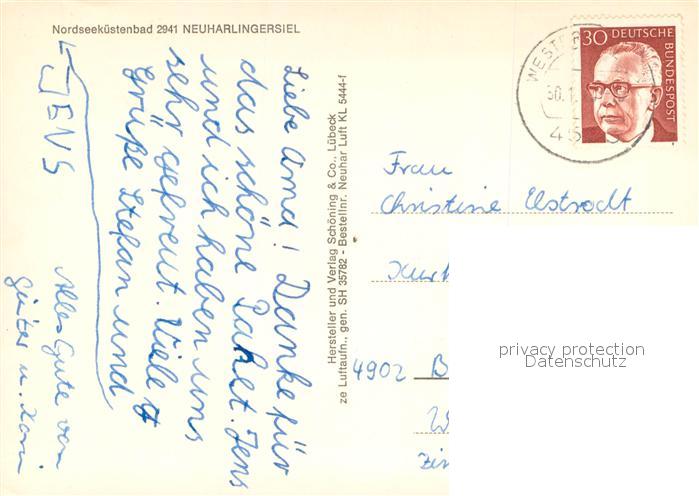 Nordseeküstenbad 2941 NEUHARLINGERSIEL
Liebe Oma! Danke für
das schöne Paket. Jens
und ich haben uns
sehr gefreut. Viele
Grüße Stefan und
JENS
Alles Gute von
Günter u.
Hersteller und Verlag Schöning & Co., Lübeck
ze Luftaufn., gen. SH 35782 - Bestellnr. Neuhar Luft KL 5444-f
30 DEUTSCHE
BUNDESPOST
Frau
Christine Elstrodt
Kurt
4902 B
privacy protection
Datenschutz
W